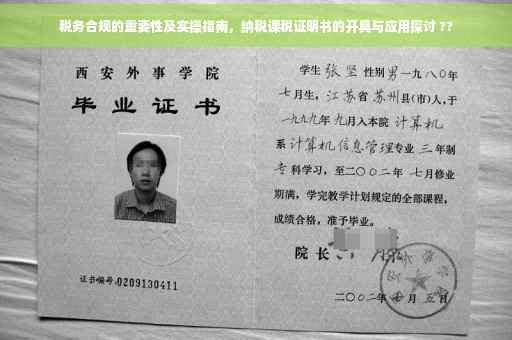 税务合规的重要性及实操指南，纳税课税证明书的开具与应用探讨 ??
西安外事学院
毕业证书
证书编号:0209130411
学生 张坚 性别 男 一九八〇年
七月生, 江苏省 苏州县(市)人,于
一九九九年 九月入本院 计算机
系 计算机信息管理专业 三 年制
专科学习, 至二〇〇二年 七月修业
期满, 学完教学计划规定的全部课程,
成绩合格, 准予毕业。
院长
二〇〇二年 月 五日